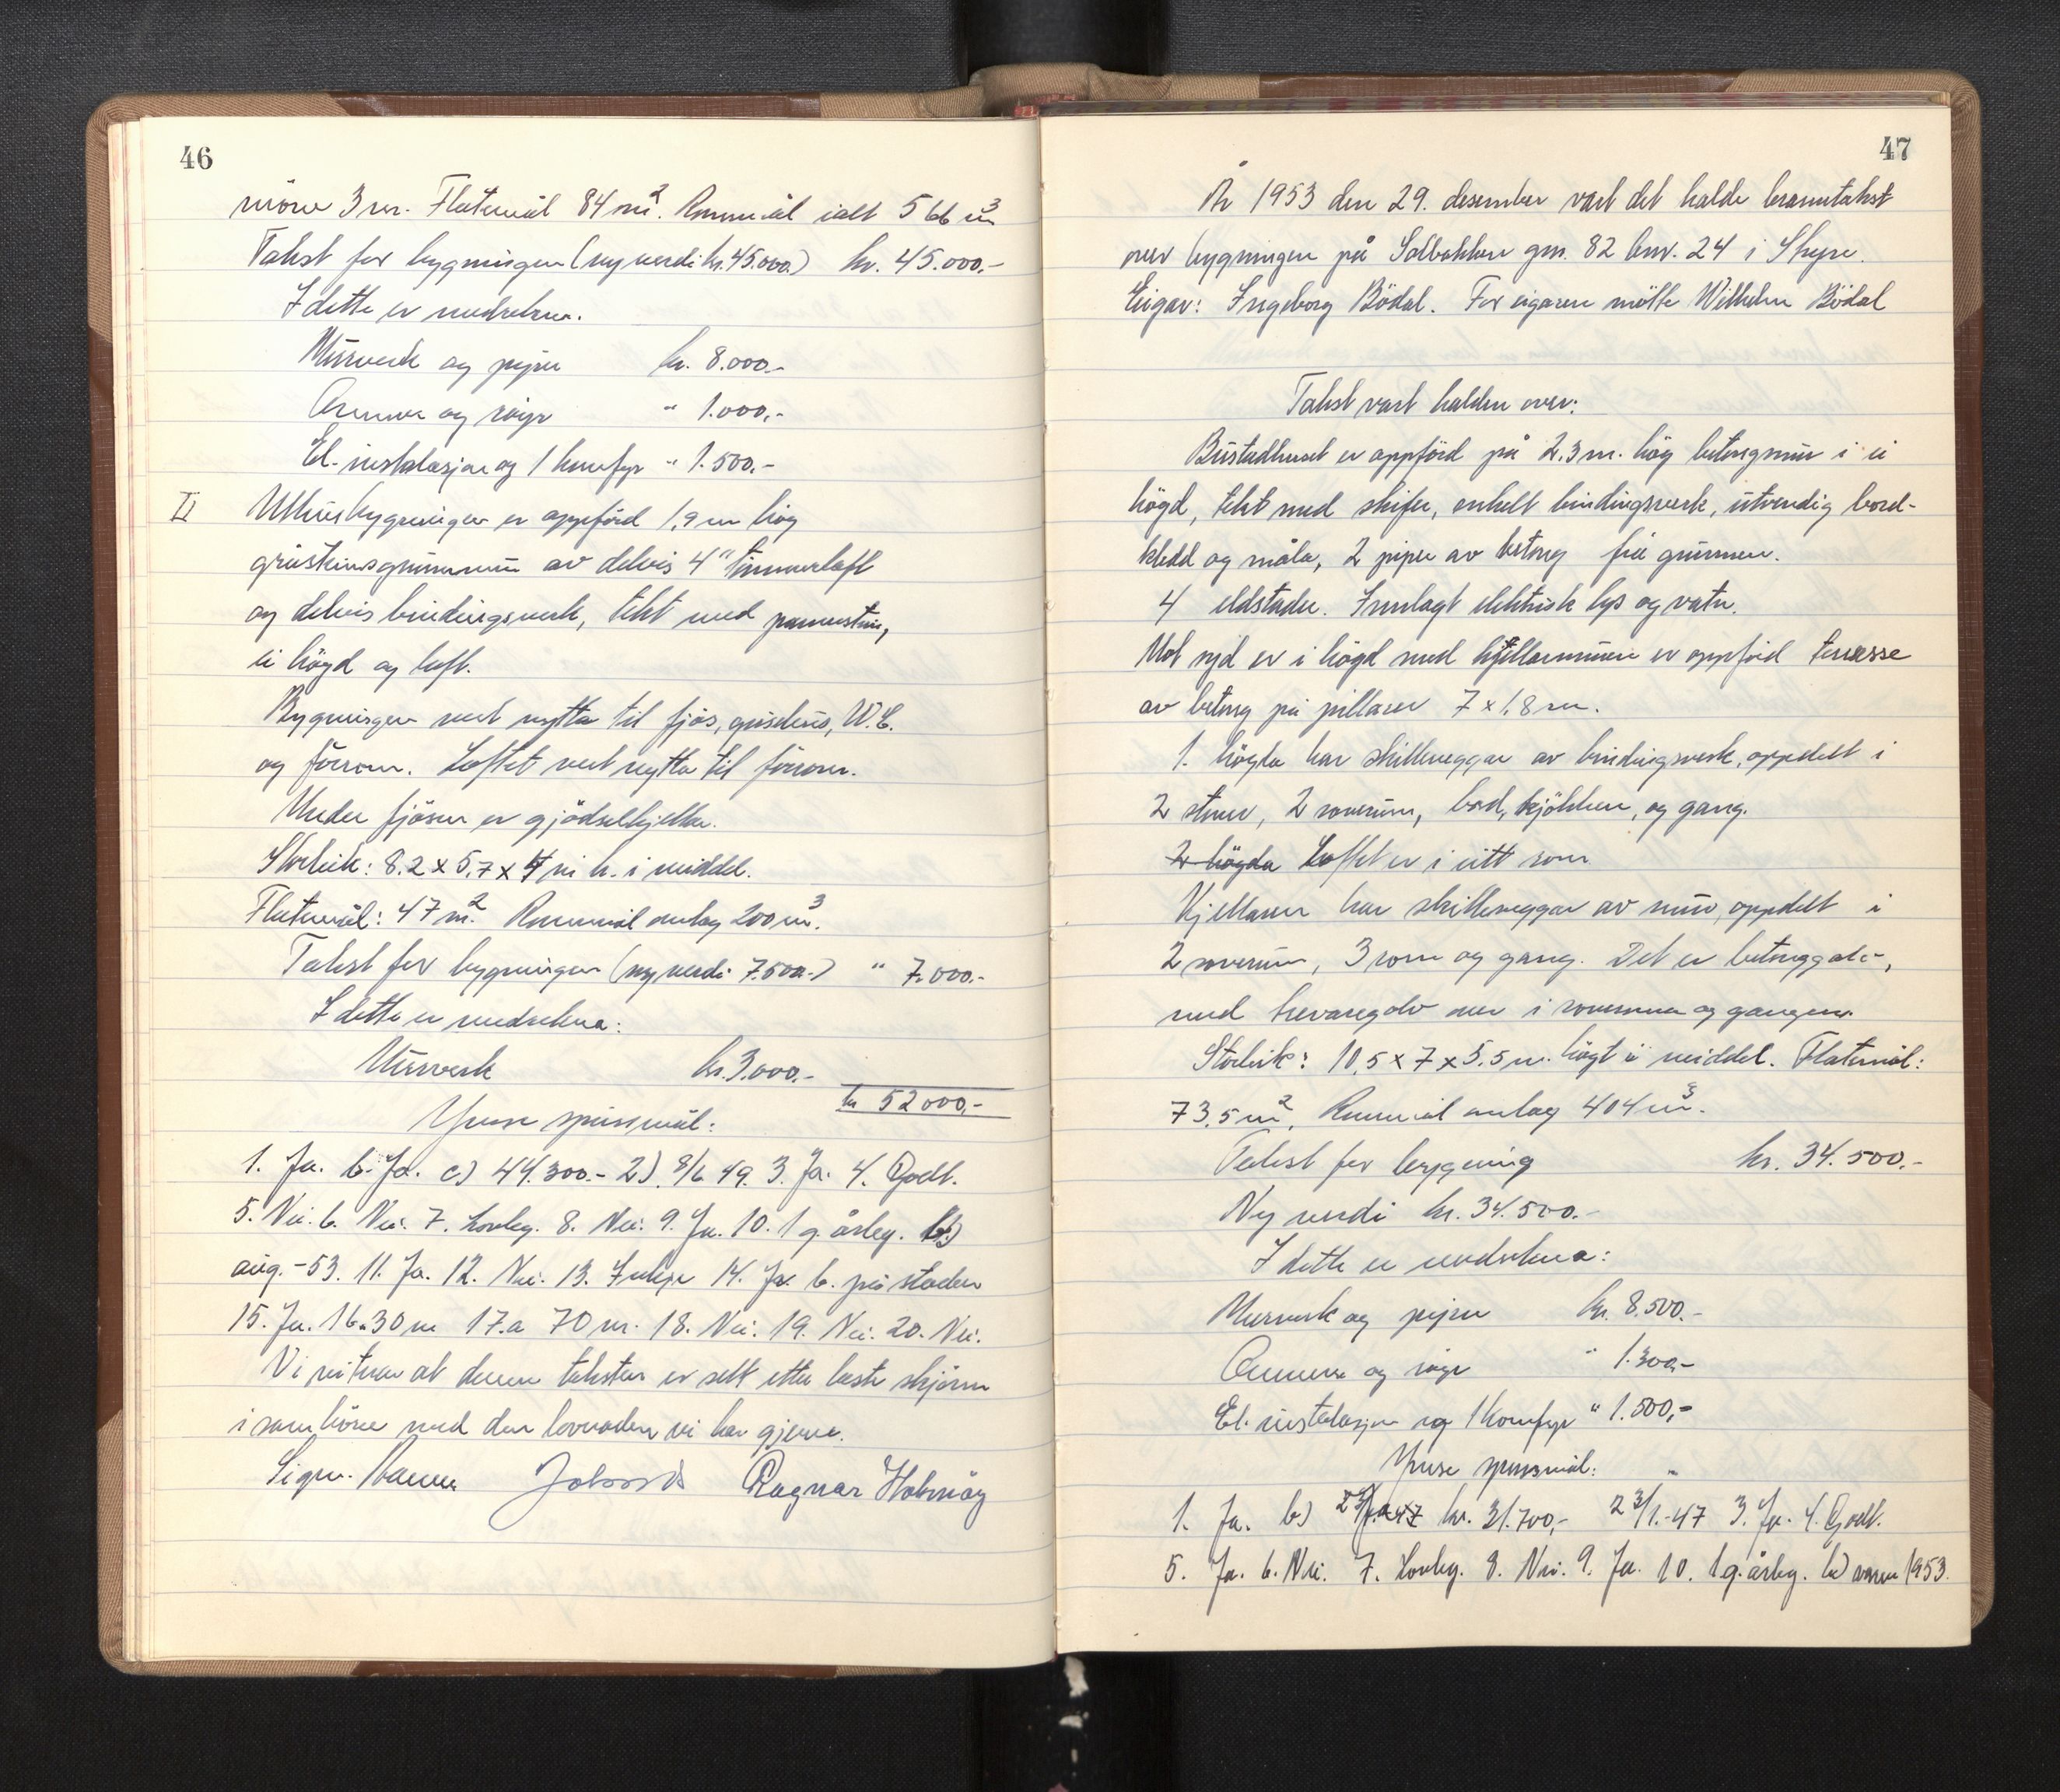 46
møne 3 m. Flatemål 84 m². Rommål ialt 566 m³
Takst for bygningen (ny verdi kr. 45.000.) kr. 45.000.-
I dette er medrekna.
Murverk og pipe kr. 8.000.-
Omnar og røyr " 1.000.-
El. installasjon og 1 komfyr " 1.500.-
II Uthusbygningen er oppförd 1,9 m hög
gråsteinsgrunnmur av delvis 4" timmerlaft
og delvis bindingsverk, tekt med pannestein,
ei högd og loft.
Bygningen vert nytta til fjös, grisehus, W.C.
og fôrrom. Loftet vert nytta til fôrrom.
Under fjösen er gjödselkjellar.
Storleik: 8.2 x 5.7 x 4 m h. i middel.
Flatemål: 47 m². Rommål omlag 200 m³.
Takst for bygningen (ny verdi 7.500.-) " 7.000.-
I dette er medrekna:
Murverk kr. 3.000.-
kr 52000.-
Ymse spursmål:
1. Ja. b. Ja. c) 44.300.- 2) 8/6 49. 3. Ja. 4. Godt.
5. Nei. 6. Nei. 7. Lovleg. 8. Nei. 9. Ja. 10. 1 g. årleg. b)
aug. -53. 11. Ja. 12. Nei. 13. Innlagt 14. Ja. b. på staden
15. Ja. 16.a 30 m 17.a 70 m. 18. Nei. 19. Nei. 20. Nei.
Vi vitnar at denne taksten er sett etter beste skjönn
i samhöve med den lovnaden vi har gjeve.
Sigm. Ragnar Holmöy
47
År 1953 den 29. desember vart det halde branntakst
over bygningen på Solbakken gnr. 82 bnr. 24 i Stryn.
Eigar: Ingeborg Bödal. For eigaren mötte Wilhelm Bödal
Takst vart halden over:
Bustadhuset er oppförd på 2.3 m. hög betongmur i ei
högd, tekt med skifer, enkelt bindingsverk, utvendig bord-
kledd og måla, 2 piper av betong frå grunnen.
4 eldstader. Innlagt elektrisk lys og vatn.
Mot syd er i högd med kjellarmuren er oppförd terrasse
av betong på pillarer 7 x 1,8 m.
1. högda har skilleveggar av bindingsverk, oppdelt i
2 stover, 2 soverum, bad, kjökken, og gang.
2 högda Loftet er i eitt rom
Kjellaren har skilleveggar av mur, oppdelt i
2 soverum, 3 rom og gang. Det er betonggolv,
med trevaregolv over i soveromma og gangen.
Storleik: 10,5 x 7 x 5.5 m. högt i middel. Flatemål:
73,5 m². Rommål omlag 404 m³.
Takst for bygning kr. 34.500.-
Ny verdi kr. 34.500.-
I dette er medrekna:
Murverk og pipe kr. 8.500.-
Omnar og røyr " 1.300.-
El. installasjon og 1 komfyr " 1.500.-
Ymse spursmål:
1. Ja. b) kr. 31.700,- 2 3/1.-47 3. Ja. 4. Godt.
5. Ja. 6. Nei. 7. Lovleg. 8. Nei. 9. Ja. 10. 1 g. årleg. b) 1953.